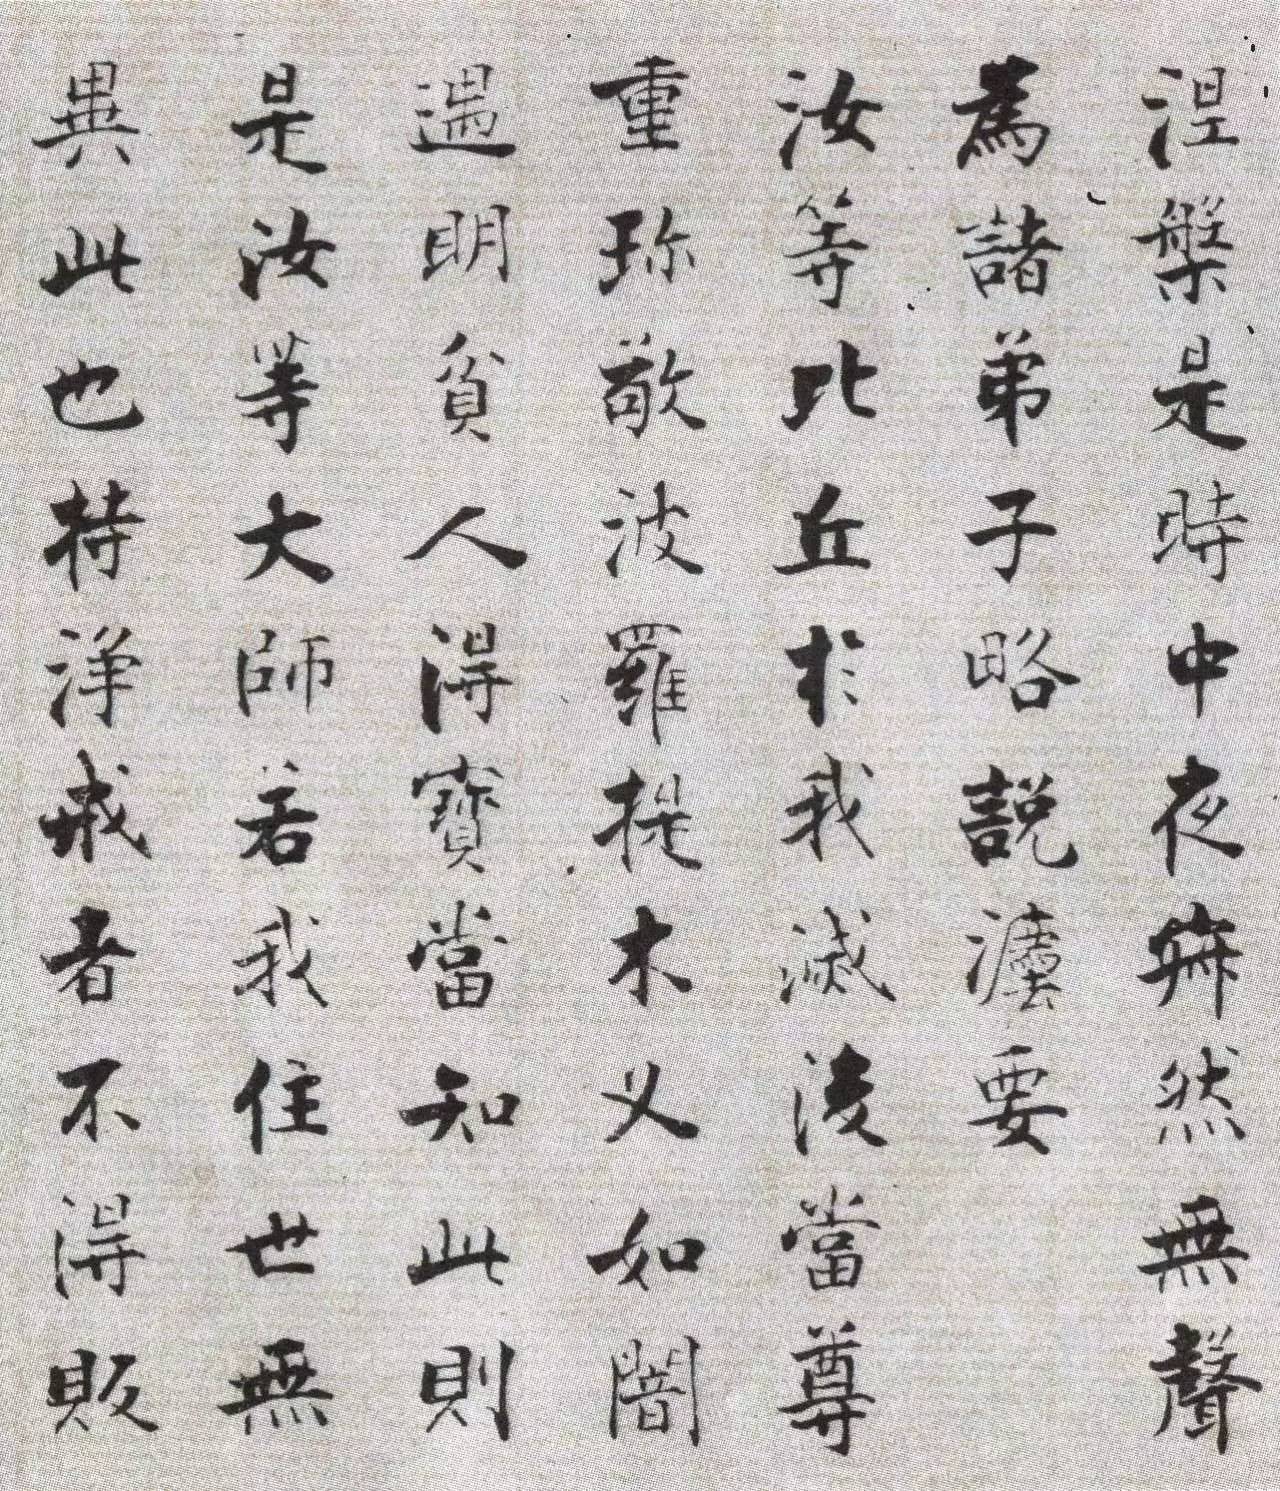 涅槃是時中夜寂然無聲
為諸弟子略說法要
汝等比丘於我滅後當尊
重珍敬波羅提木叉如闇
遇明貧人得寶當知此則
是汝等大師若我住世無
異此也持淨戒者不得販